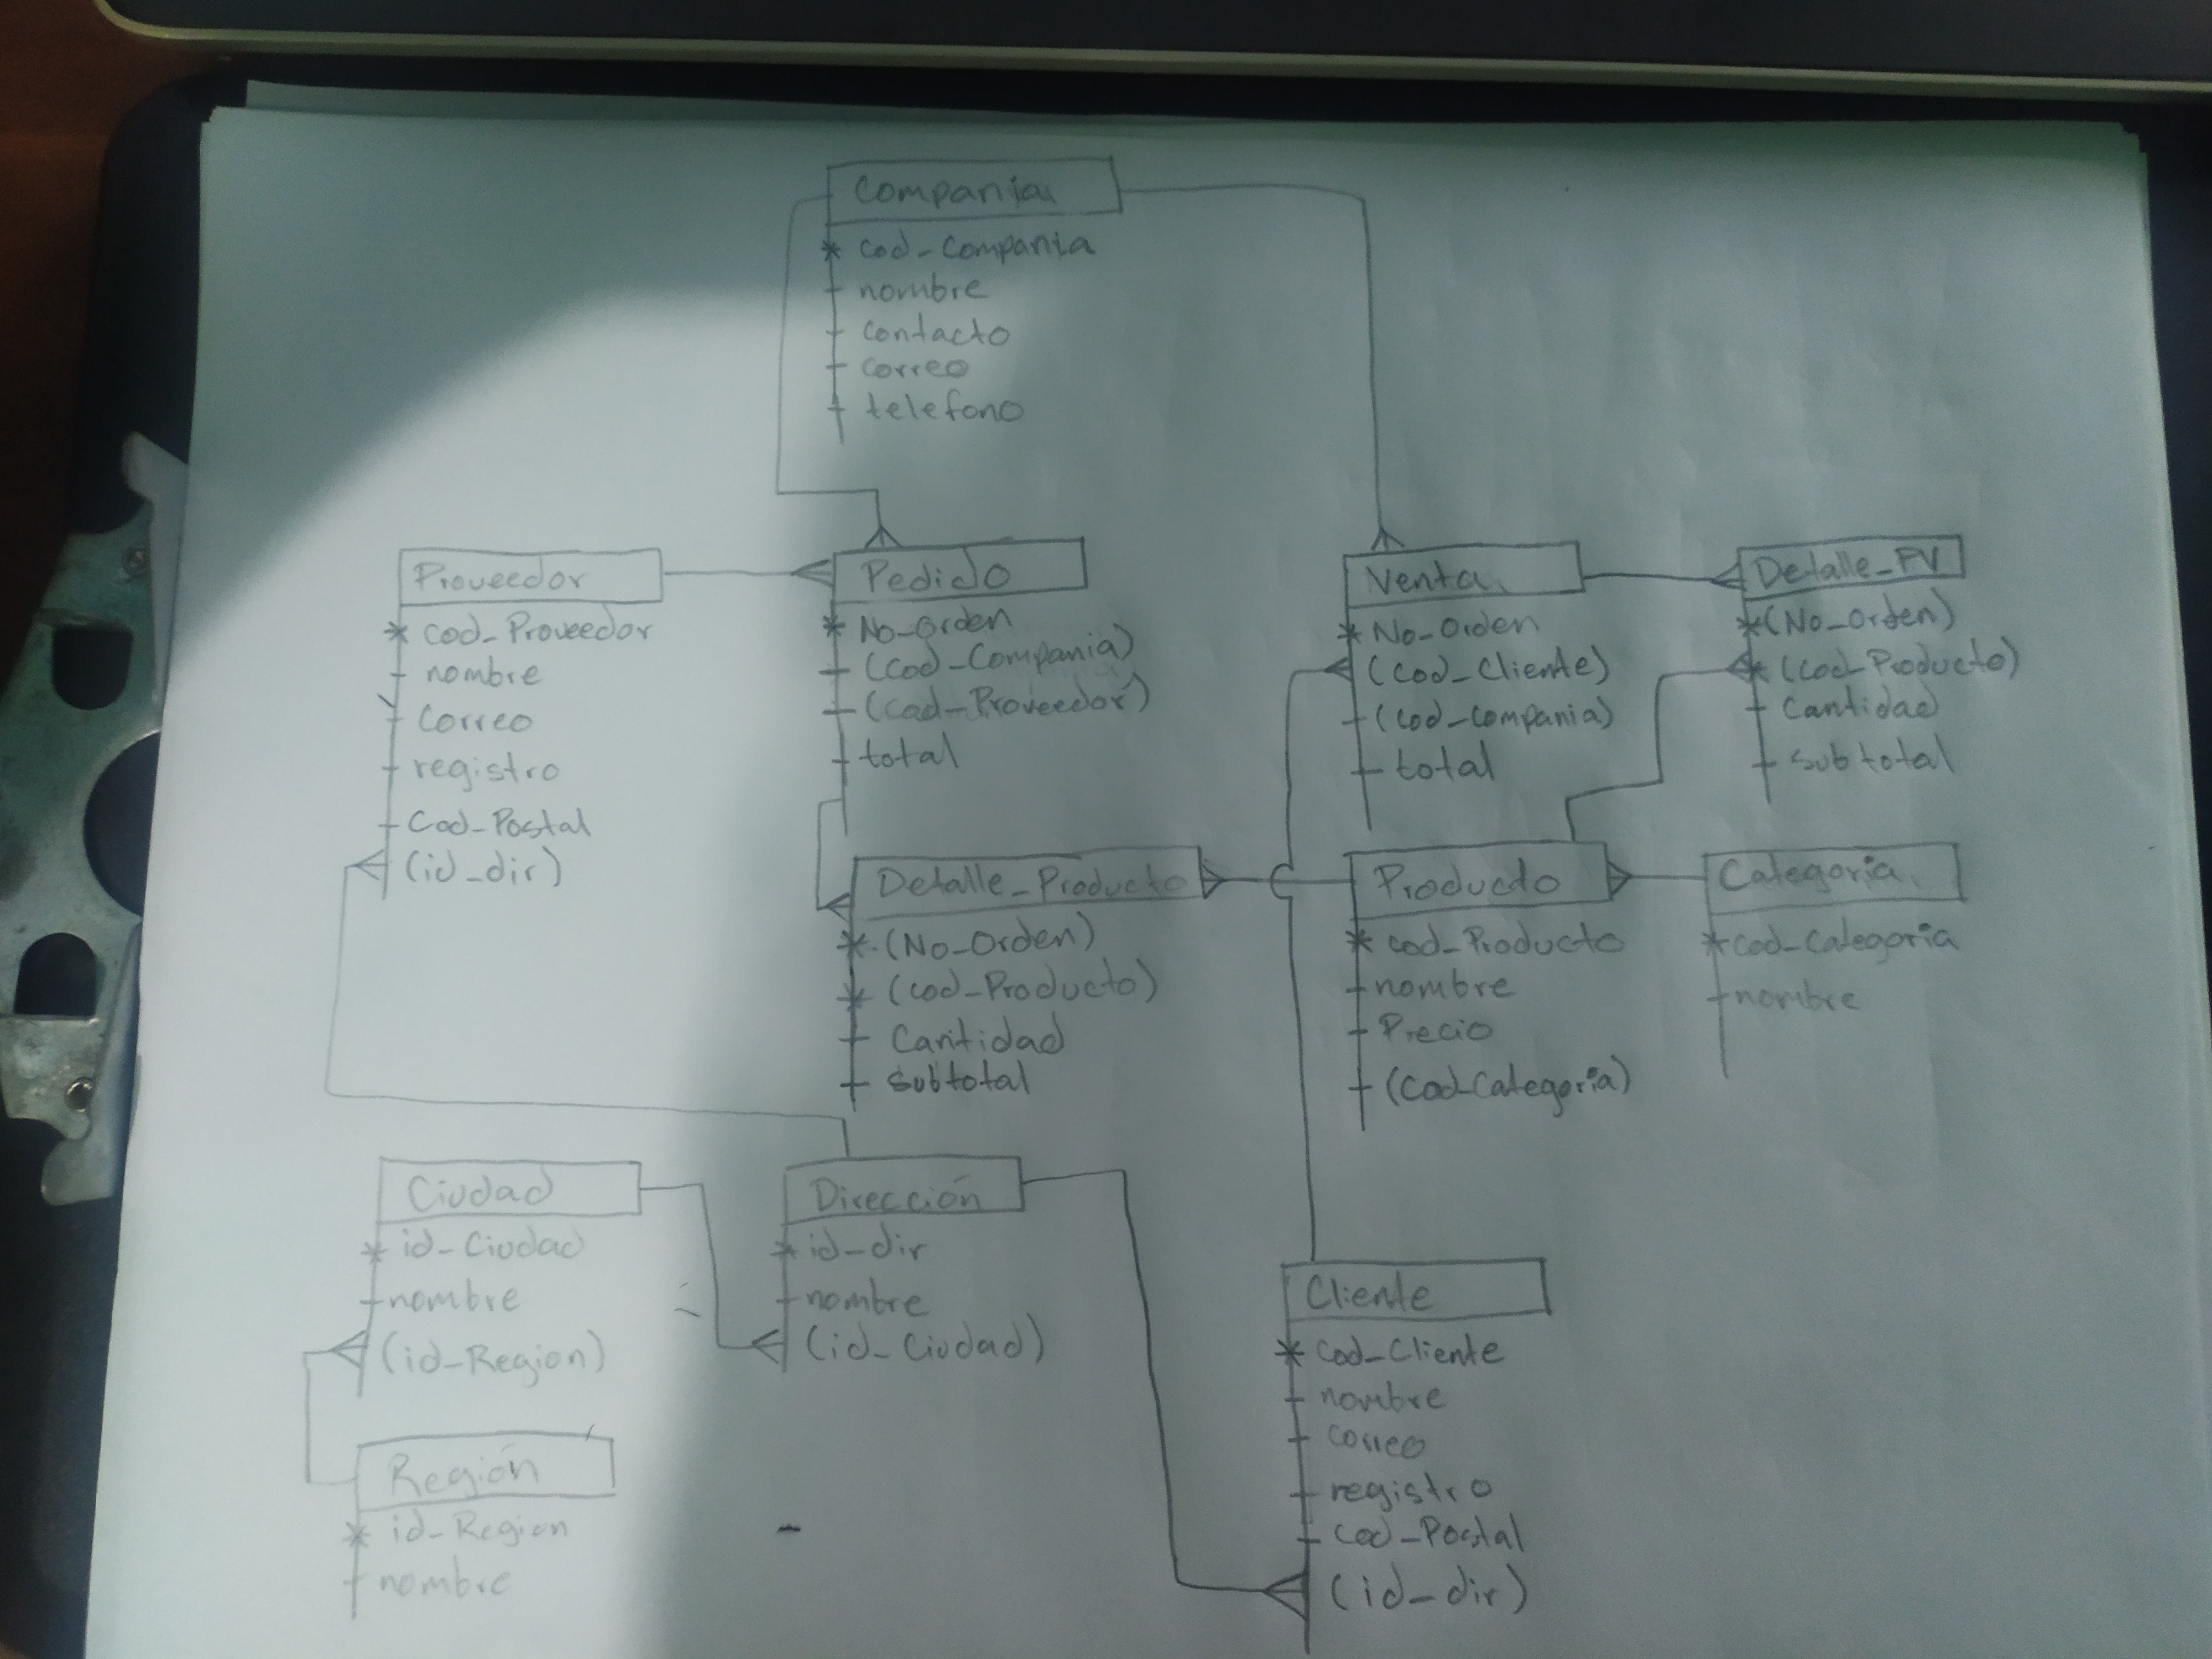 Compania
* cod_compania
nombre
contacto
correo
telefono
Proveedor
* cod_Proveedor
nombre
Correo
registro
Cod_Postal
(id_dir)
Pedido
* No_orden
(Cod_Compania)
(Cod_Proveedor)
total
Venta
* No_Orden
(Cod_Cliente)
(cod_compania)
total
Detalle_PV
* (No_orden)
* (Cod_Producto)
Cantidad
subtotal
Detalle_Producto
* (No_Orden)
* (cod_Producto)
Cantidad
subtotal
Producto
* cod_Producto
nombre
Precio
(Cod_Categoria)
Categoria
* cod_Categoria
nombre
Ciudad
* id_Ciudad
nombre
(id_Region)
Dirección
* id_dir
nombre
(id_Ciudad)
Cliente
* cod_Cliente
nombre
correo
registro
Cod_Postal
(id_dir)
Región
* id_Region
nombre